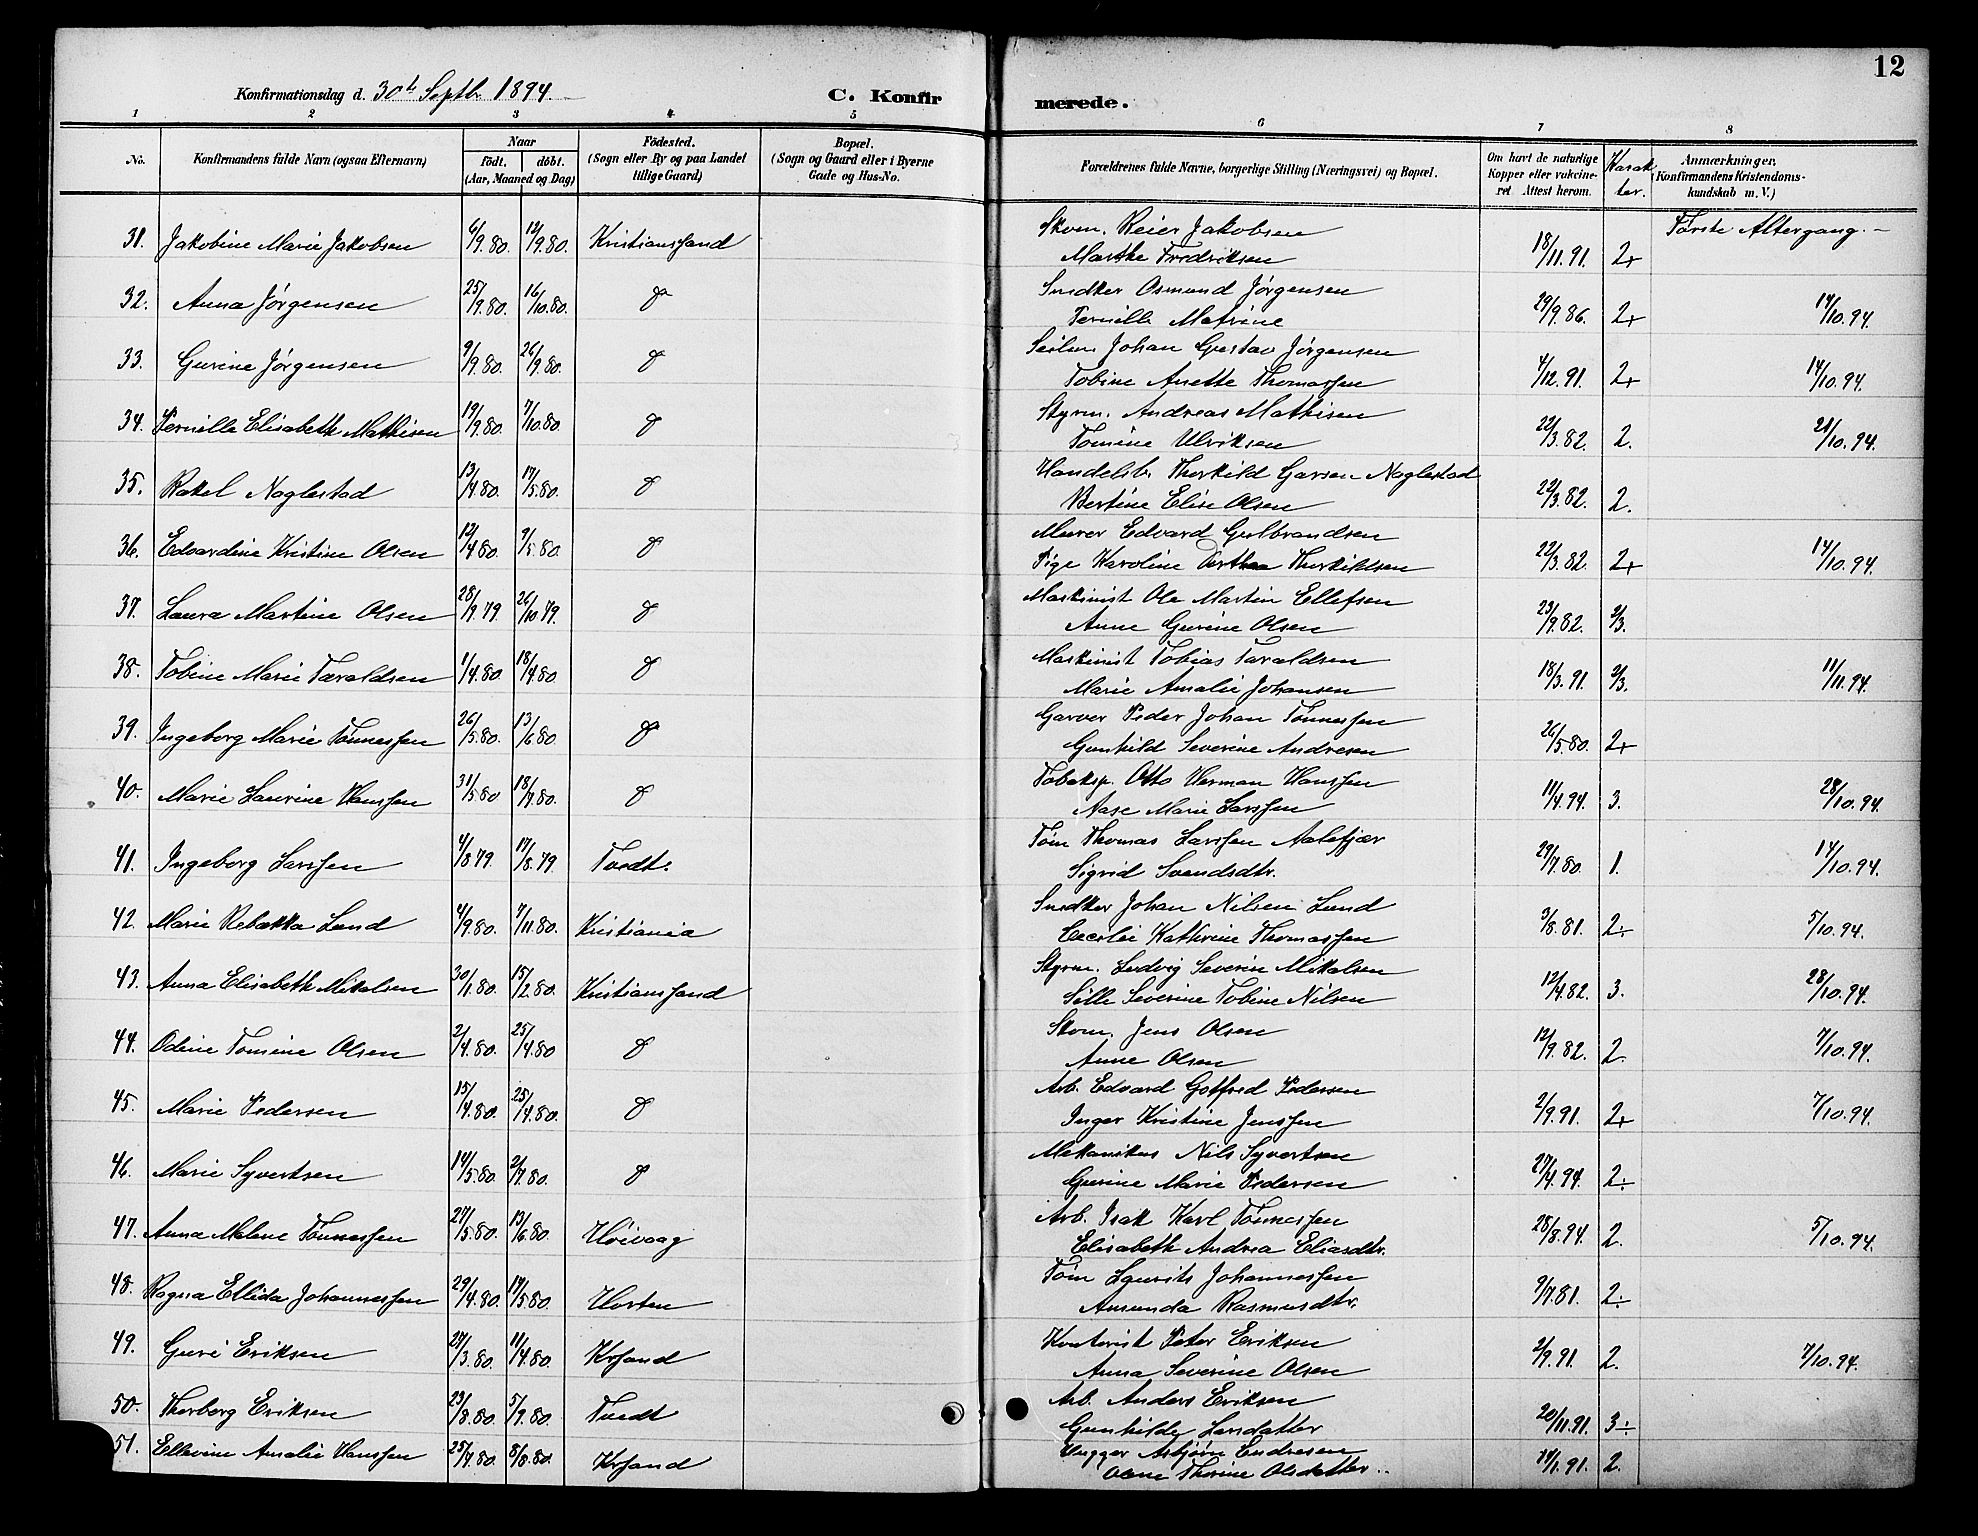 12
Konfirmationsdag d. 30th Septbr 1894.
C. Konfirmerede.
1 2 3 4 5 6 7 8
No. Konfirmandens fulde Navn (ogsaa Efternavn) Naar Födt. döbt. (Aar, Maaned og Dag) Födested. (Sogn eller By og paa Landet tillige Gaard) Bopæl. (Sogn og Gaard eller i Byerne Gade og Hus-No. Forældrenes fulde Navne, borgerlige Stilling (Næringsvei) og Bopæl. Om havt de naturlige Kopper eller vakcineret. Attest herom. Karakter. Anmærkninger, Konfirmandens Kristendomskundskab m. V.)
Første Altergang.
31. Jakobine Marie Jakobsen 6/9.80. 12/9.80. Kristianssand Skom. Reier Jakobsen 18/11.91. 2+
Marthe Fredriksen
32. Anna Jørgensen 25/9.80. 16/10.80. do Snedker Osmund Jørgensen 29/9.86. 2+ 14/10.94.
Pernille Matrine
33. Gurine Jørgensen 9/9.80. 26/9.80. do Seilm. Johan Gustav Jørgensen 4/12.91. 2+ 14/10.94.
Tobine Anette Thomassen
34. Pernille Elisabeth Mathisen 19/9.80. 7/10.80 do Styrm. Andreas Mathisen 22/3.82. 2. 21/10.94.
Tomine Ulriksen
35. Rakel Naglestad 13/4.80. 17/5.80. do Handelsb. Therkild Garsen Naglestad 22/3.82. 2.
Bertine Elise Olsen
36. Edvardine Kristine Olsen 12/4.80. 9/5.80. do Murer Edvard Gulbrandsen 22/3.82. 2+ 14/10.94.
Pige Karoline Berthea Therkildsen
37. Laura Martine Olsen 28/9.79 26/10.79. do Maskinist Ole Martin Ellefsen 23/9.82. 2/3.
Anne Gurine Olsen
38. Tobine Marie Taraldsen 1/4.80. 18/4.80 do Maskinist Tobias Taraldsen 18/3.91. 2/3. 11/11.94.
Marie Amalie Johansen
39. Ingeborg Marie Tønnessen 26/5.80. 13/6.80 do Garver Peder Johan Tønnessen 26/5.80. 2+
Gunhild Severine Andresen
40. Marie Laurine Hanssen 31/5.80 18/7.80. do Tobaksp. Otto Herman Hanssen 11/4.94. 3. 28/10.94.
Aase Marie Larssen
41. Ingeborg Larssen 4/8.79. 17/8.79 Tvedt. Tøm Thomas Larssen Aalefjær 29/7.80. 1. 14/10.94.
Sigrid Svendsdtr.
42. Marie Rebækka Lund 4/9.80. 7/11.80. Kristiania Snedker Johan Nilsen Lund 3/8.81. 2÷ 5/10.94.
Cecelie Kathrine Thomassen
43. Anna Elisabeth Mikalsen 30/1.80. 15/2.80. Kristianssand Styrm. Ludvig Severin Mikalsen 12/4.82. 3. 28/10.94.
Sille Severine Tobine Nilsen
44. Odine Tomine Olsen 2/4.80. 25/4.80 do Skom. Jens Olsen 12/9.82. 2. 7/10.94.
Anne Olsen
45. Marie Pedersen 15/4.80. 25/4.80. do Arb. Edvard Gotfred Pedersen 2/9.91. 2+ 7/10.94.
Inger Kristine Jenssen
46. Marie Syvertsen 14/5.80. 2/7.80. do Mekanikus Nils Syvertsen 27/4.94. 2÷
Gurine Marie Pedersen
47. Anna Malene Tønnessen 27/5.80. 13/6.80. Høivaag Arb. Isak Karl Tønnessen 28/8.94. 2. 5/10.94.
Elisabeth Andrea Eliasdtr.
48. Ragna Ellida Johannessen 29/4.80. 17/5.80. Horten Tøm Lauritz Johannessen 9/7.81. 2÷
Amunda Rasmusdtr.
49. Guri Eriksen 27/3.80. 11/4.80. Krsand Kontorist Peter Eriksen 2/9.91. 2. 7/10.94.
Anna Severine Olsen
50. Thorborg Eriksen 23/8.80. 5/9.80. Tvedt Arb. Anders Eriksen 20/11.91. 3÷
Gunhilde Larsdatter
51. Ellevine Amalie Hanssen 25/7.80. 8/8.80. Krsand Hugger Asbjørn Endresen 14/1.91. 2.
Thorine Olsdatter